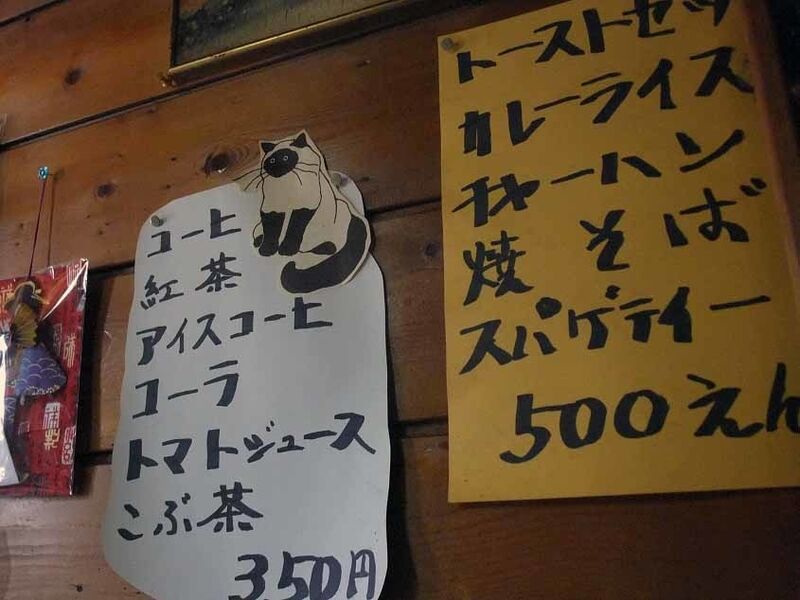 コーヒ
紅茶
アイスコーヒ
コーラ
トマトジュース
こぶ茶
350円
トーストセッ
カレーライス
チャーハン
焼そば
スパゲティー
500えん